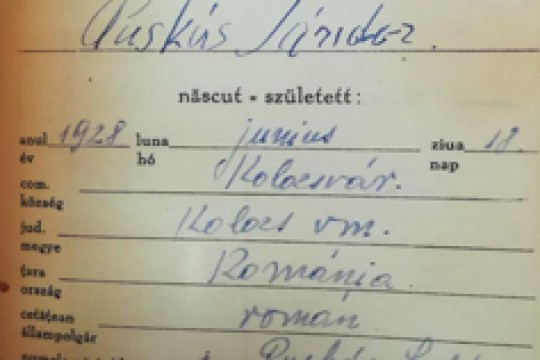 Puskás Sándor.
născut - született:
anul 1928 luna junius ziua 18.
év hó nap
com. Kolozsvár.
község
jud. Kolozs vm.
megye
țara Románia
ország
cetățean román
állampolgár